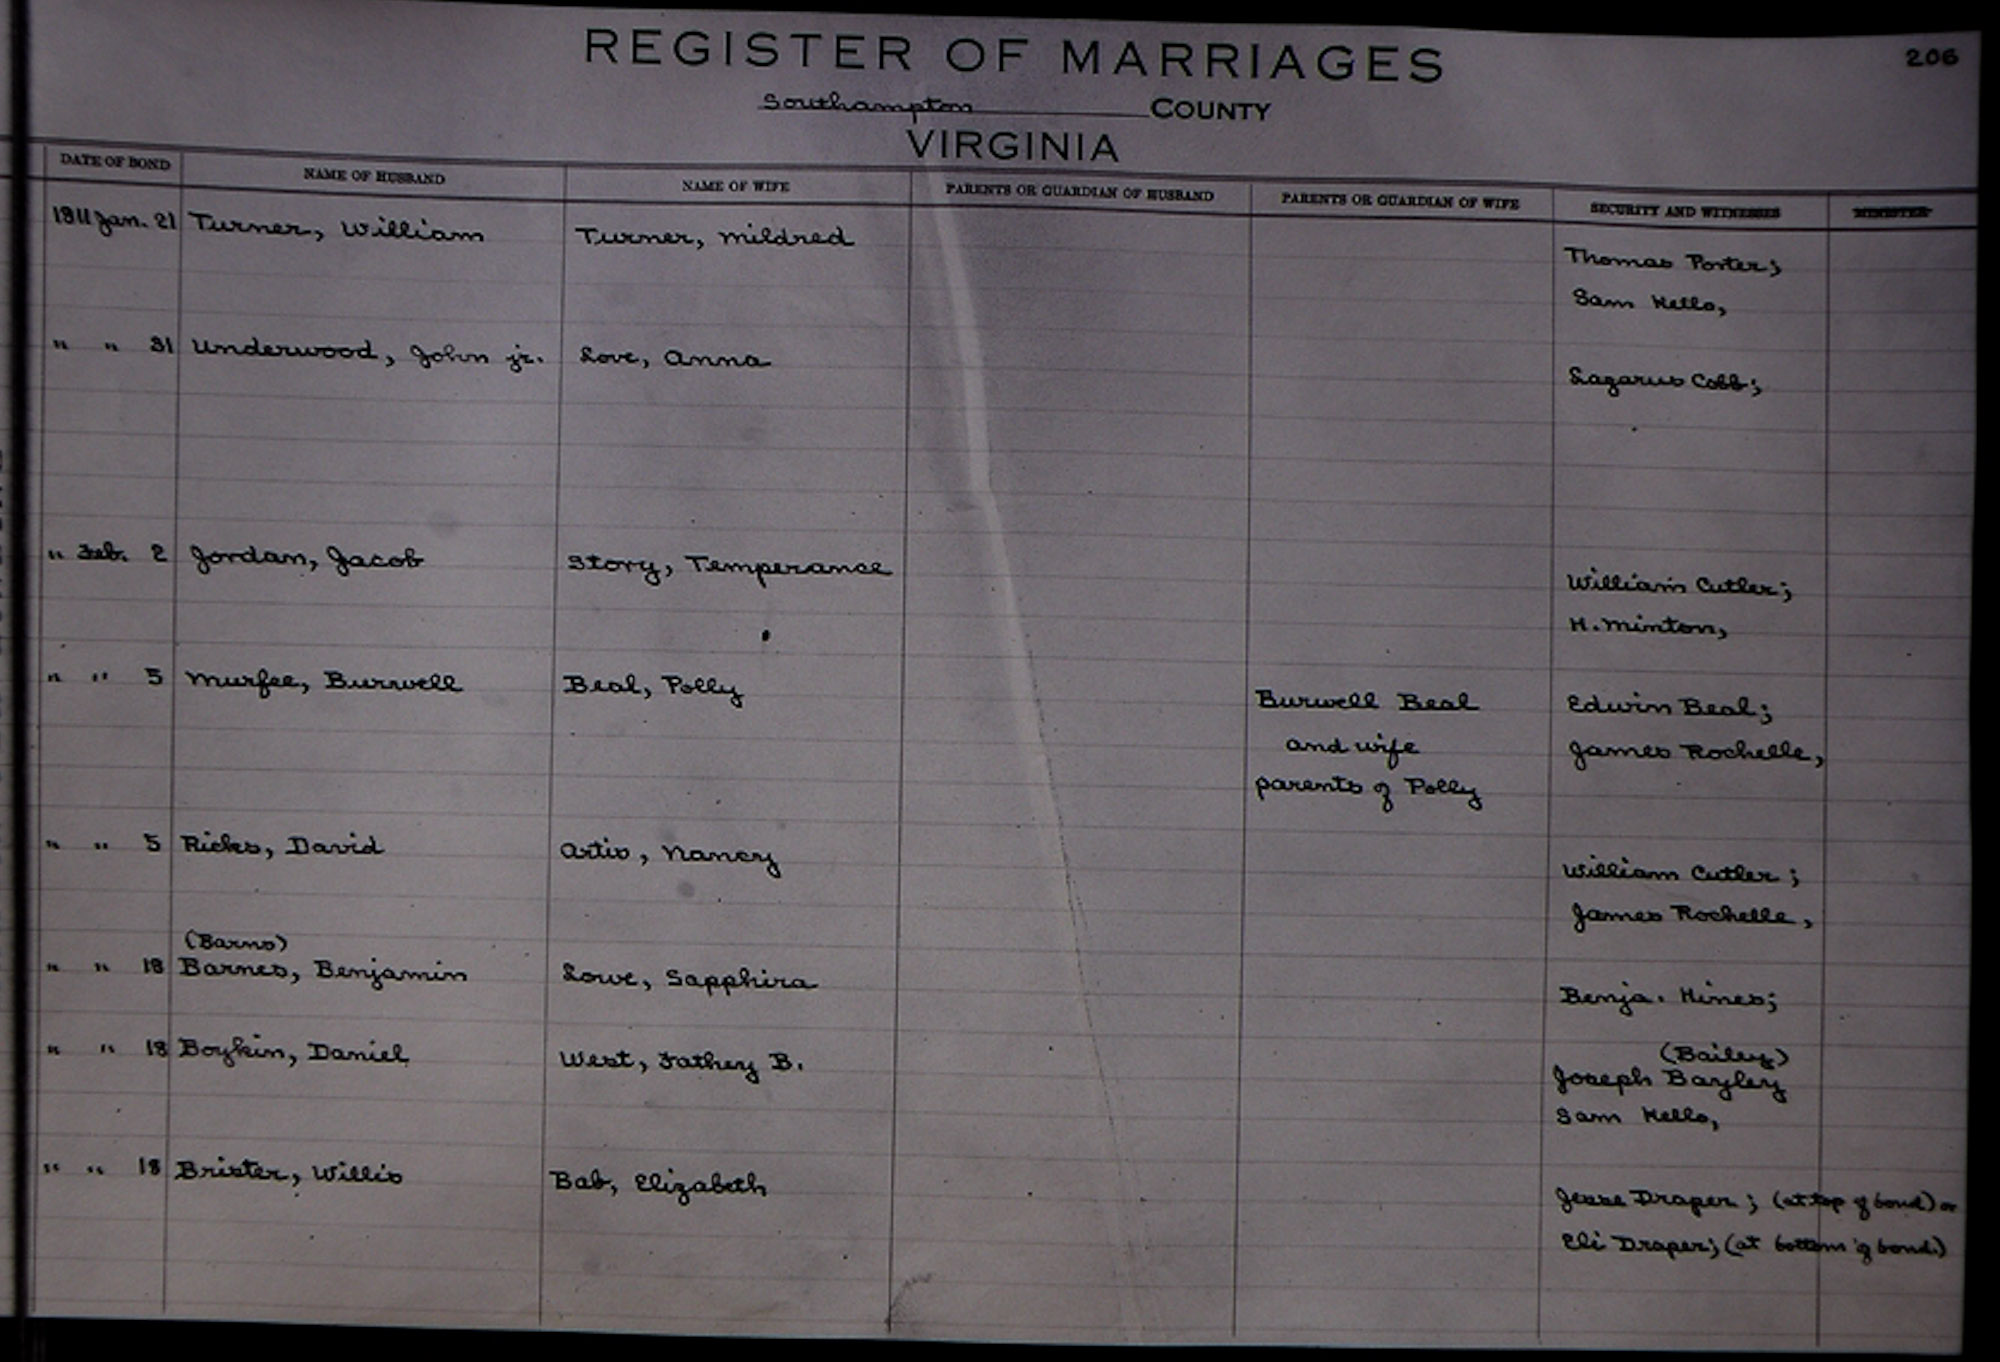 206
REGISTER OF MARRIAGES
Southampton COUNTY
VIRGINIA
DATE OF BOND NAME OF HUSBAND NAME OF WIFE PARENTS OR GUARDIAN OF HUSBAND PARENTS OR GUARDIAN OF WIFE SECURITY AND WITNESSES MINISTER
1811 Jan. 21 Turner, William Turner, Mildred
Thomas Porter;
Sam Kello,
" " 31 Underwood, John jr. Love, Anna
Lazarus Cobb;
" Feb. 2 Jordan, Jacob Story, Temperance
William Cutler;
H. Minton,
" " 5 Murfee, Burwell Beal, Polly Burwell Beal Edwin Beal;
and wife James Rochelle,
parents of Polly
" " 5 Ricks, David Artis, Nancy
William Cutler;
James Rochelle,
(Barns)
" " 18 Barnes, Benjamin Lowe, Sapphira
Benja. Hines;
" " 18 Boykin, Daniel West, Fathey B. (Bailey)
Joseph Bayley
Sam Kello,
" " 18 Brister, Willis Bab, Elizabeth
Jesse Draper; (at top of bond) or
Eli Draper; (at bottom of bond.)